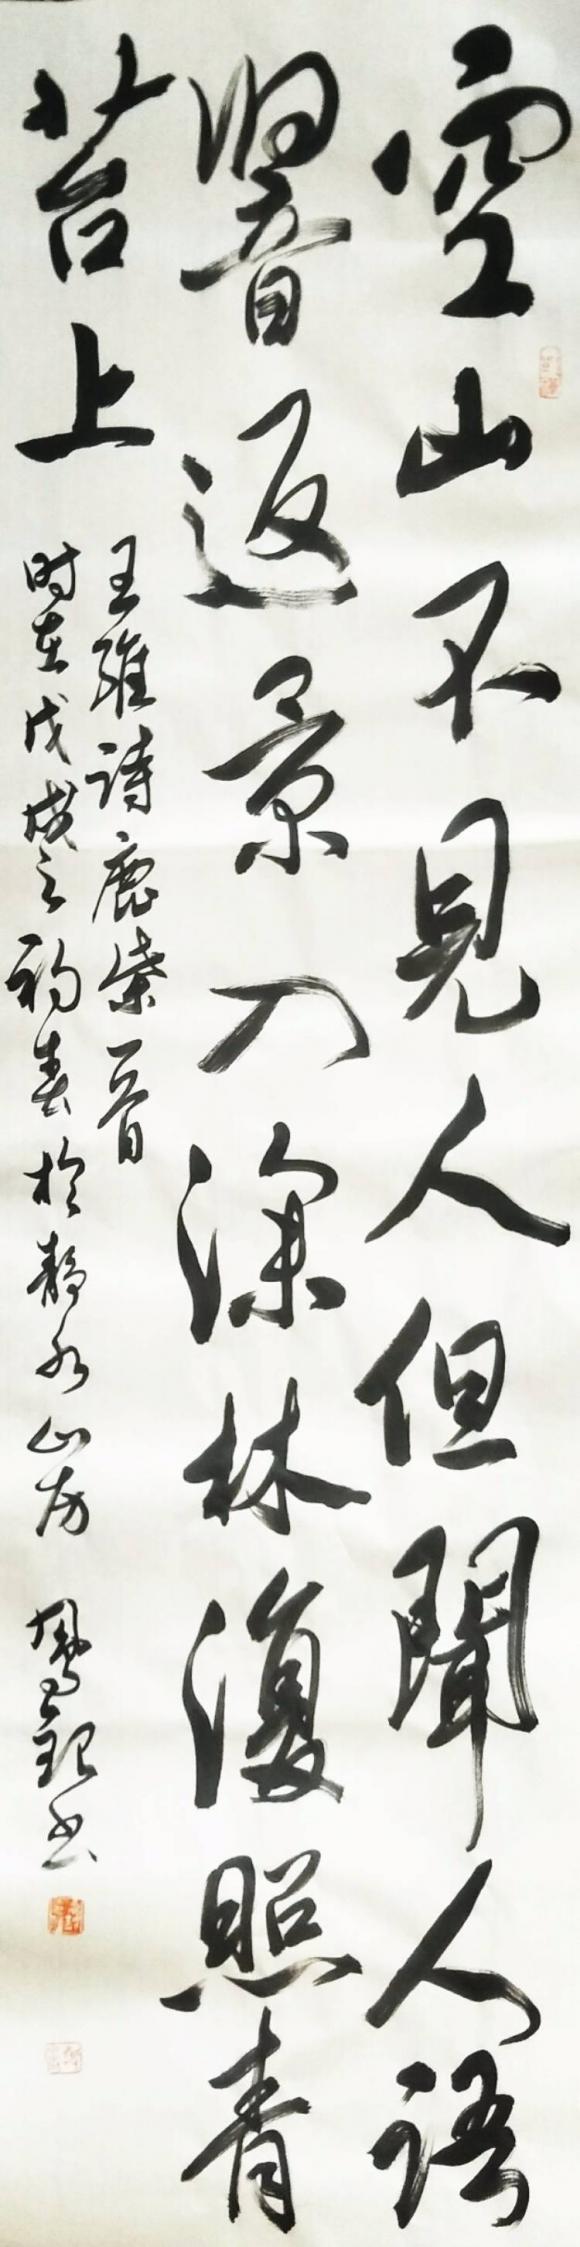 空山不見人但聞人語
響返景入深林復照青
苔上
王維詩鹿柴一首
时在戊戌之初春於静水山房 鳳书